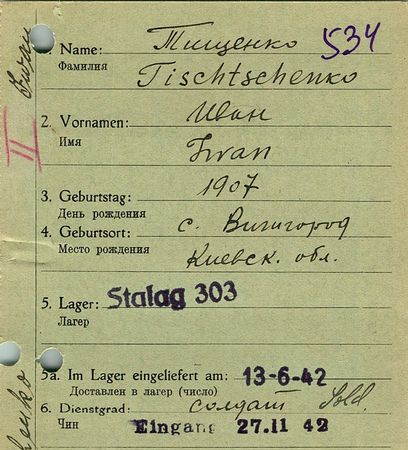 534
1. Name: Тищенко
Фамилия Tischtschenko
2. Vornamen: Иван
Имя Iwan
II
3. Geburtstag: 1907
День рождения
4. Geburtsort: с. Вишгород
Место рождения Киевск. обл.
5. Lager: Stalag 303
Лагер
5a. Im Lager eingeliefert am: 13-6-42
Доставлен в лагер (число)
6. Dienstgrad: солдат Sold.
Чин Eingang 27.11 42
Iwan